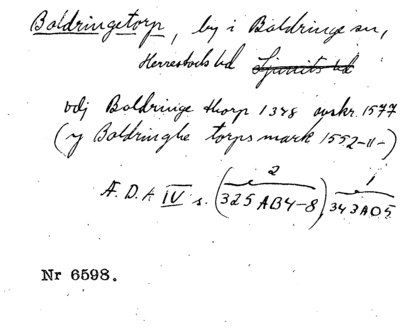 Baldringetorp, by i Baldringe sn,
Herrestads hd Ljunits hd
Baldringe thorp 1348 avskr. 1577
(y Baldringhe torps mark 1552 -"-)
Æ. D. A. IV s. (325 AB4-8), 343 AD5
2 1
Nr 6598.